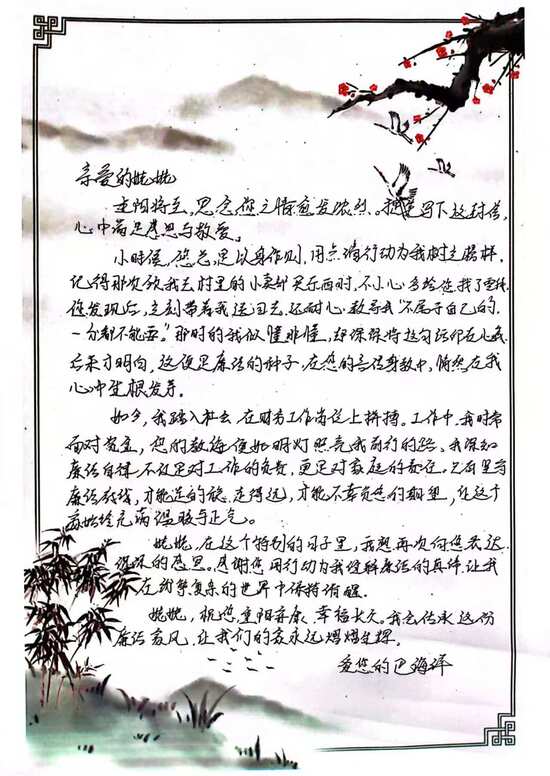 亲爱的姥姥
重阳将至，思念您之情愈发浓烈。提笔写下这封信，
心中满是感恩与敬爱。
小时候，您总是以身作则，用点滴行动为我树立榜样。
记得那次您我去村里的小卖部买东西时，不小心多给您找了零钱，
您发现后，立刻带着我送回去，还耐心教导我“不属于自己的，
一分都不能要。”那时的我似懂非懂，却深深将这句话印在心底
后来才明白，这便是廉洁的种子，在您的言传身教中，悄然在我
心中生根发芽。
如今，我踏入社会，在财务工作岗位上拼搏。工作中，我时常
面对资金，您的教诲便如明灯照亮我前行的路。我深知
廉洁自律，不仅是对工作的负责，更是对家庭的责任。只有坚守
廉洁底线，才能走的稳、走得远，才能不辜负您的期望，让这个
家始终充满温暖与正气。
姥姥，在这个特别的日子里，我想再次向您表达
深深的感恩。感谢您用行动为我诠释廉洁的真谛，让我
在纷繁复杂的世界中保持清醒。
姥姥，祝您重阳安康、幸福长久。我会传承这份
廉洁家风，让我们的家永远熠熠生辉。
爱您的巴海祥